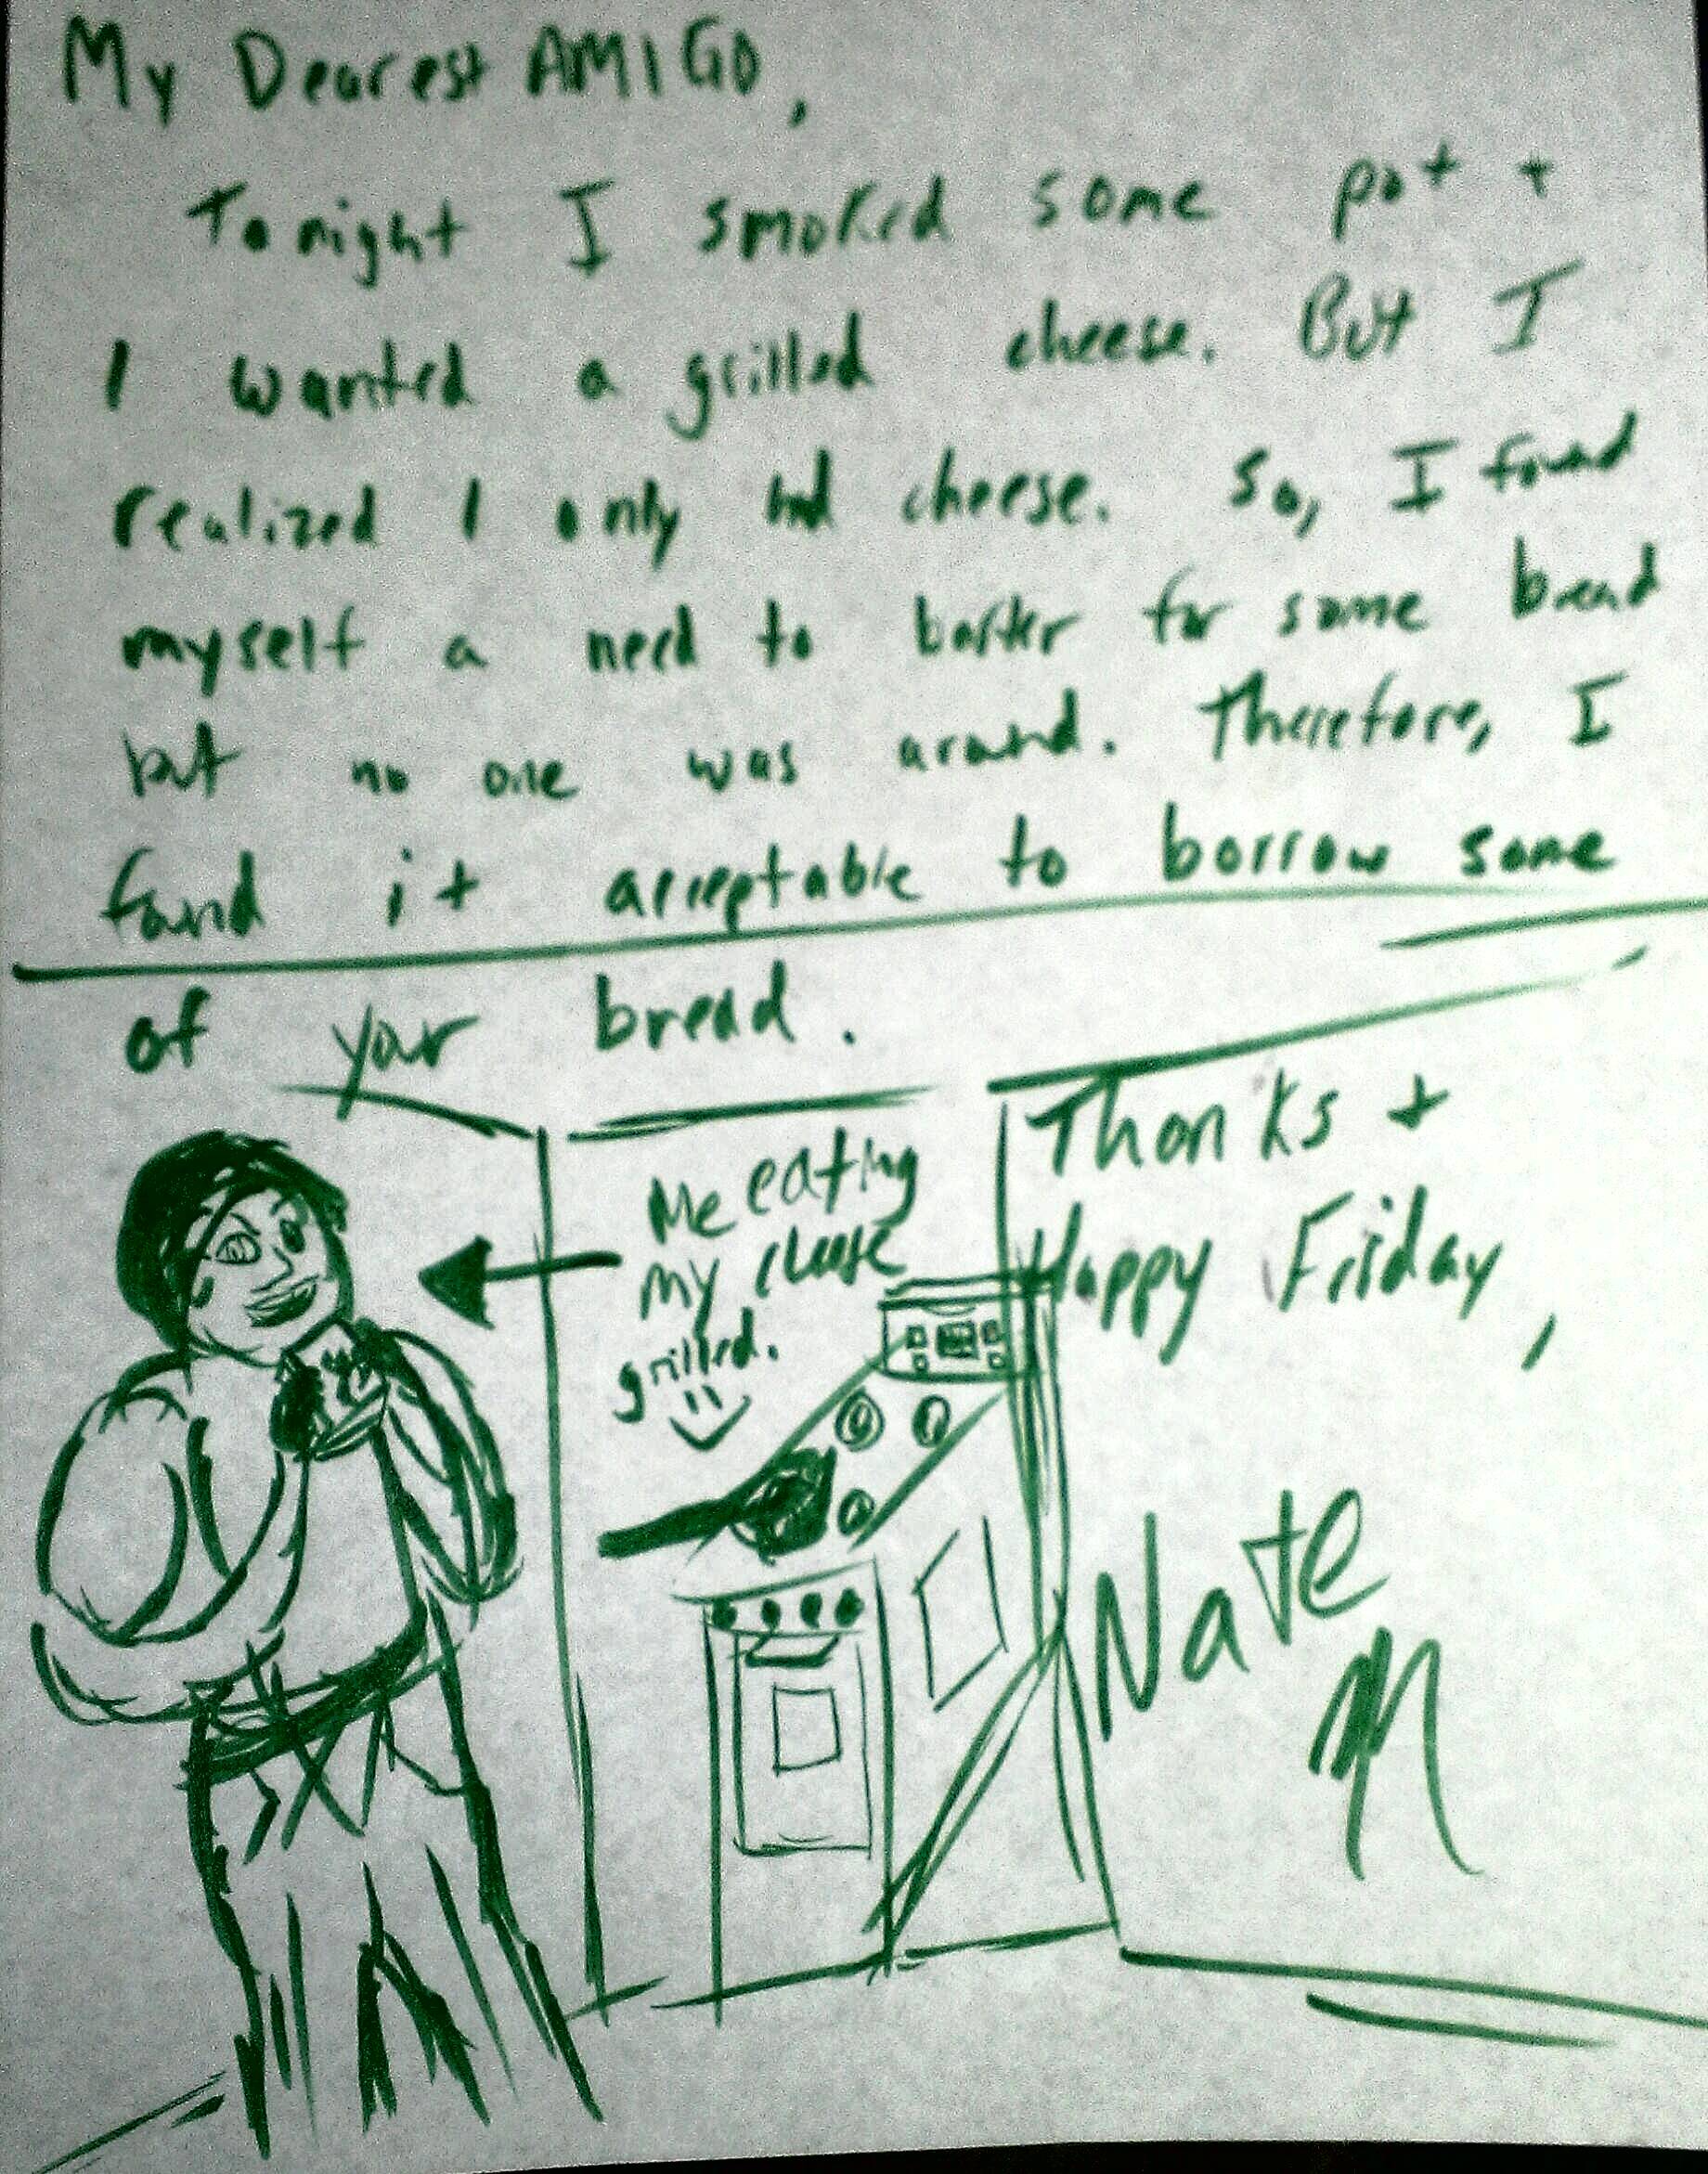 My Dearest AMIGO,
Tonight I smoked some pot +
I wanted a grilled cheese. But I
realized I only had cheese. So, I found
myself a need to barter for some bread
but no one was around. Therefore, I
found it acceptable to borrow some
of your bread.
Me eating
my cheese
grilled.
Thanks +
Happy Friday,
Nate
M